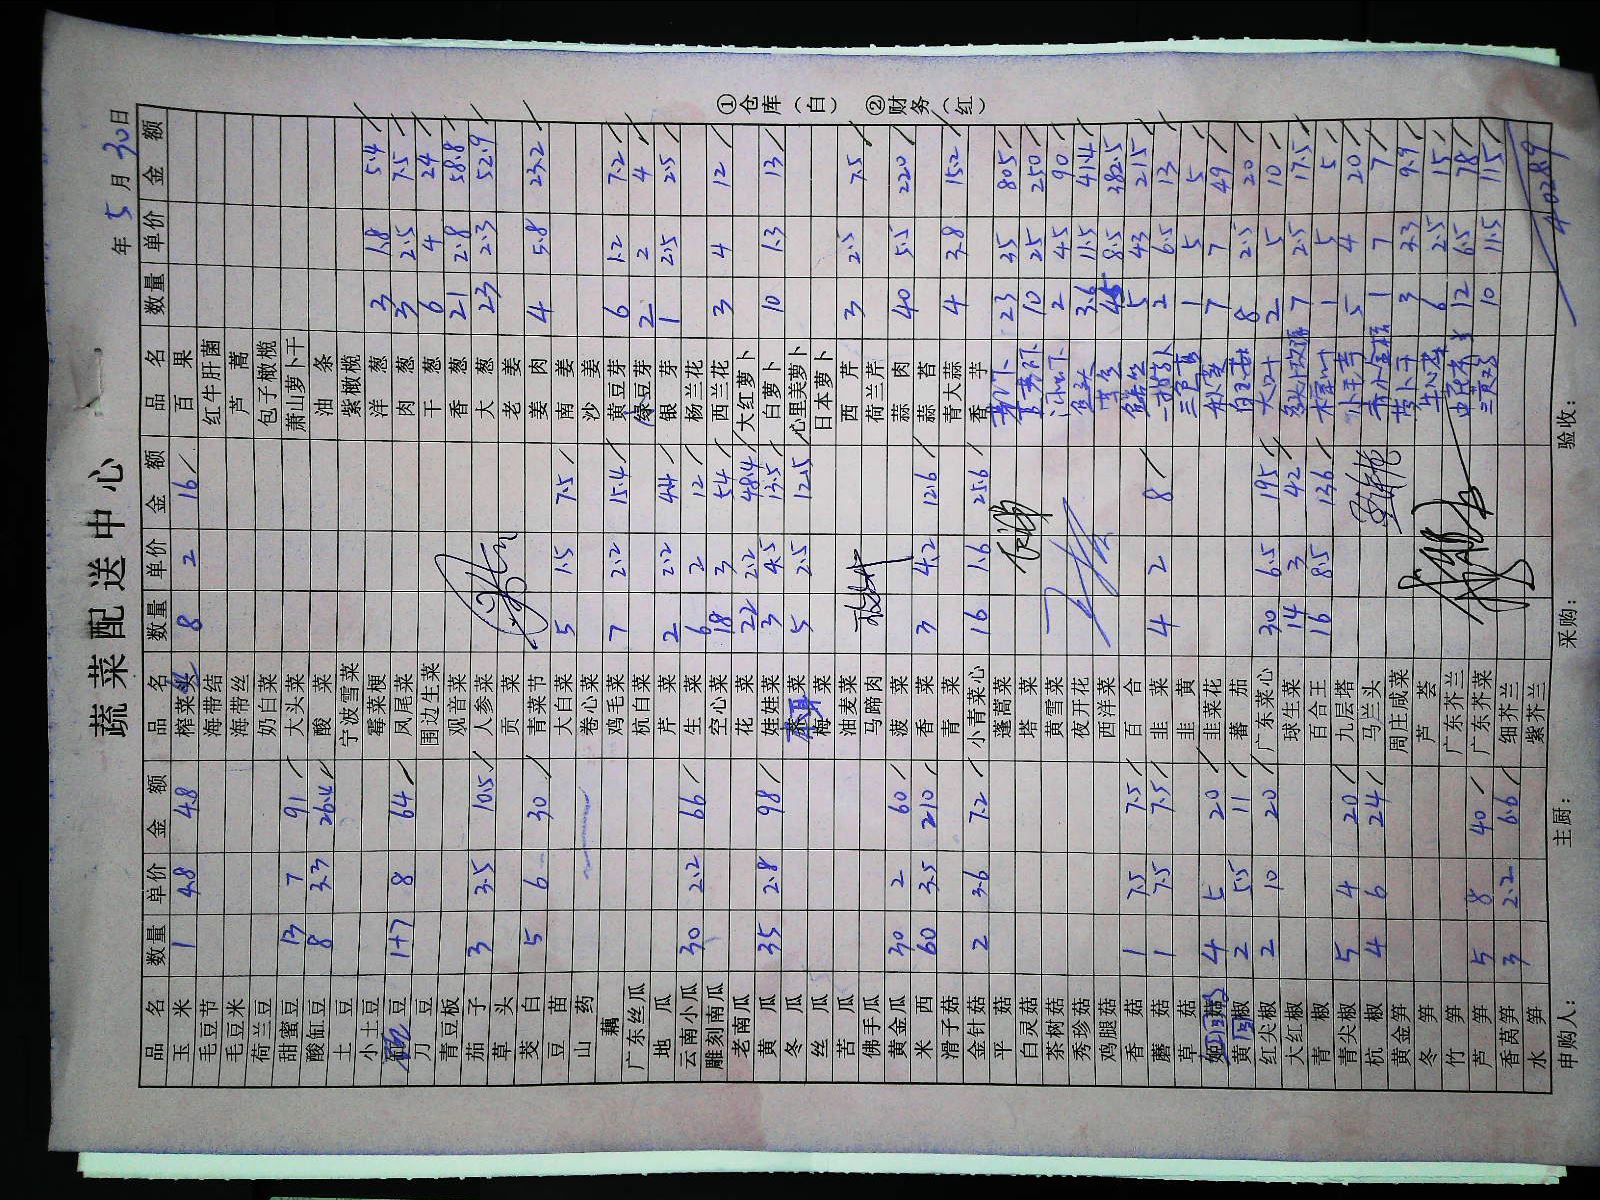 蔬菜配送中心
年 5 月 30 日
品名 数量 单价 金额 品名 数量 单价 金额 品名 数量 单价 金额
玉米 1 4.8 4.8 榨菜 8 2 16 百果
毛豆节 海带结 红牛肝菌
毛豆米 海带丝 芦蒿
荷兰豆 奶白菜 包子橄榄
甜蜜豆 13 7 91 大头菜 萧山萝卜干
酸缸豆 8 3.3 26.4 酸菜 油条
土豆 宁波雪菜 紫橄榄
小土豆 霉菜梗 洋葱 3 1.8 5.4
豆 1+7 8 64 凤尾菜 肉葱 3 2.5 7.5
刀豆 围边生菜 干葱 6 4 24
青豆板 观音菜 香葱 21 2.8 58.8
茄子 3 3.5 10.5 人参菜 大葱 23 2.3 52.9
草头 贡菜 老姜
茭白 5 6 30 青菜节 姜肉 4 5.8 23.2
豆苗 大白菜 5 1.5 7.5 南姜
山药 卷心菜 沙姜
藕 鸡毛菜 7 2.2 15.4 黄豆芽 6 1.2 7.2
广东丝瓜 杭白菜 绿豆芽 2 2 4
地瓜 芹菜 2 2.2 4.4 银芽 1 2.5 2.5
云南小瓜 30 2.2 66 生菜 6 2 12 杨兰花
雕刻南瓜 空心菜 18 3 54 西兰花 3 4 12
老南瓜 花菜 22 2.2 48.4 大红萝卜
黄瓜 35 2.8 98 娃娃菜 3 4.5 13.5 白萝卜 10 1.3 13
冬瓜 菜 5 2.5 12.5 心里美萝卜
丝瓜 梅菜 日本萝卜
苦瓜 油麦菜 西芹 3 2.5 7.5
佛手瓜 马蹄肉 荷兰芹
黄金瓜 30 2 60 菠菜 蒜肉 40 5.5 220
米西 60 3.5 210 香菜 3 4.2 12.6 蒜苔
滑子菇 青菜 青大蒜 4 3.8 15.2
金针菇 2 3.6 7.2 小青菜心 16 1.6 25.6 香芋
平菇 蓬蒿菜 23 35 805
白灵菇 塔菜 10 25 250
茶树菇 黄雪菜 2 45 90
秀珍菇 夜开花 3.6 11.5 41.4
鸡腿菇 西洋菜 45 8.5 382.5
香菇 1 7.5 7.5 百合 5 43 215
蘑菇 1 7.5 7.5 韭菜 4 2 8 2 6.5 13
草菇 韭黄 三色堇 1 5 5
菇 4 5 20 韭菜花 7 7 49
黄椒 2 5.5 11 蕃茄 8 2.5 20
红尖椒 2 10 20 广东菜心 30 6.5 195 大叶 2 5 10
大红椒 球生菜 14 3 42 7 2.5 17.5
青椒 百合王 16 8.5 136 1 5 5
青尖椒 5 4 20 九层塔 5 4 20
杭椒 4 6 24 马兰头 1 7 7
黄金笋 周庄咸菜 萝卜干 3 3.3 9.9
冬笋 芦荟 6 2.5 15
竹笋 广东芥兰 12 6.5 78
芦笋 5 8 40 广东芥菜 10 11.5 115
香莴笋 3 2.2 6.6 细芥兰
水笋 紫芥兰 4028.9
申购人： 主厨： 采购： 验收：
①仓库（白） ②财务（红）